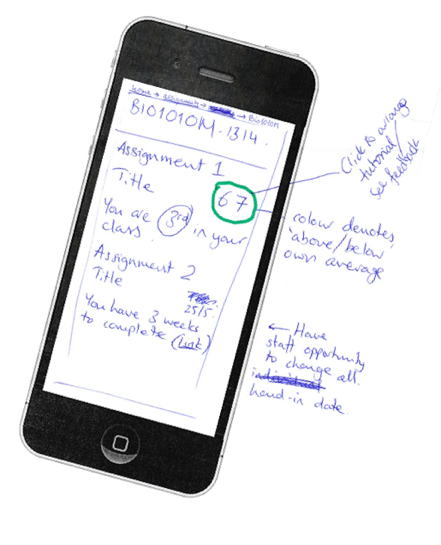 home → assignments → → Bio1010M
BIO1010M-1314.
Assignment 1
Title
67
You are 3rd in your
class.
Assignment 2
Title
25/5.
You have 3 weeks
to complete (link)
Click to arrange
tutorial/
see feedback
colour denotes
above/below
own average
← Have
staff opportunity
to change all
hand-in date.